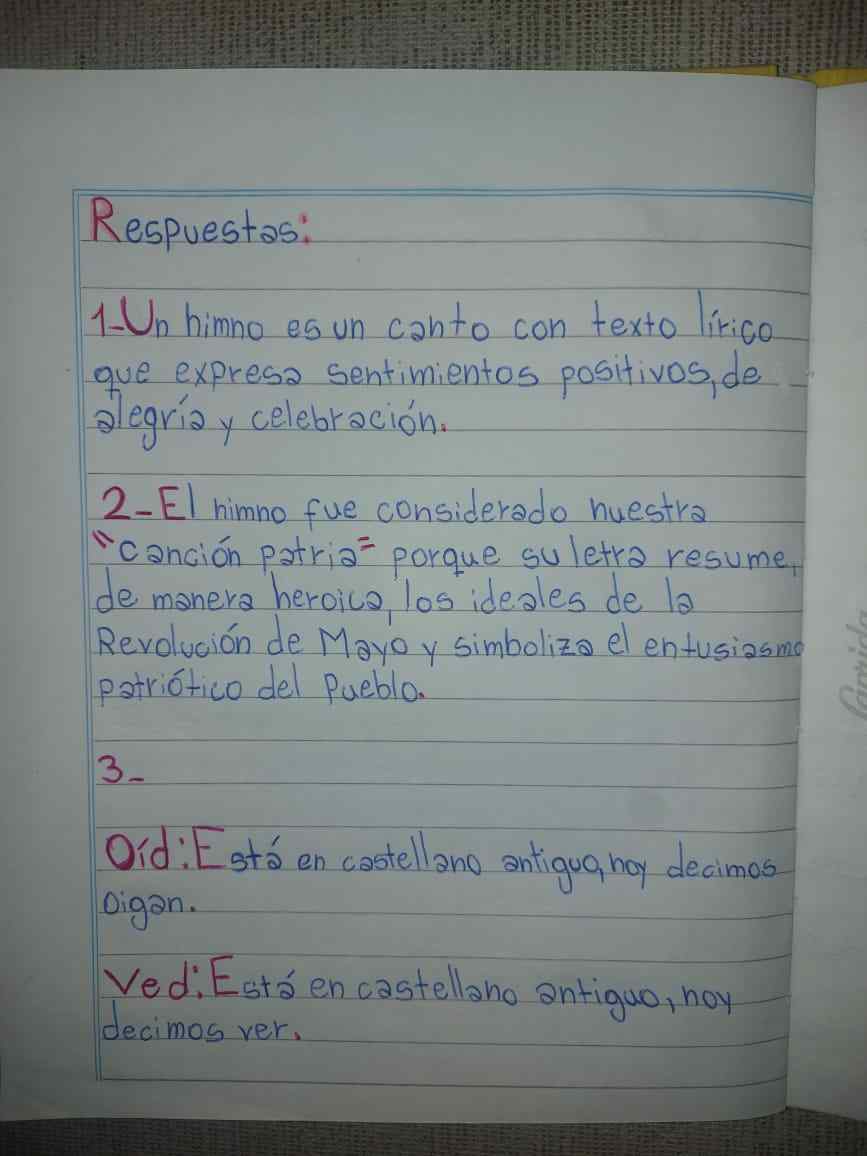 Respuestas:
1-Un himno es un canto con texto lírico
que expresa sentimientos positivos, de
alegría y celebración.
2-El himno fue considerado nuestra
"canción patria" porque su letra resume,
de manera heroica, los ideales de la
Revolución de Mayo y simboliza el entusiasmo
patriótico del Pueblo.
3-
Oíd: Está en castellano antiguo, hoy decimos
oigan.
Ved: Está en castellano antiguo, hoy
decimos ver.